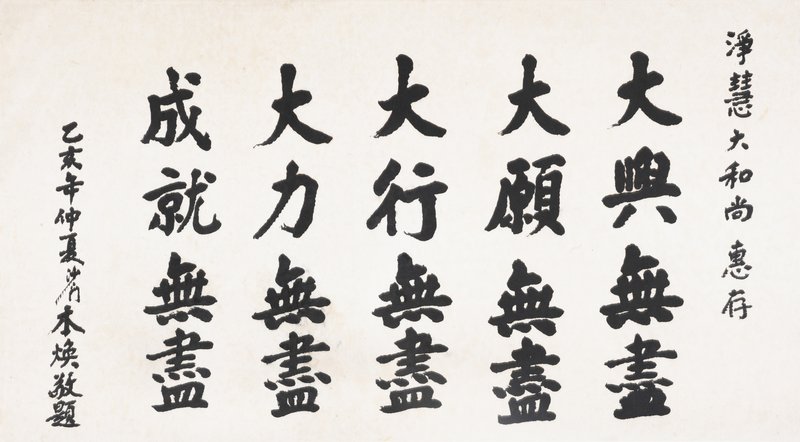 淨慧大和尚惠存
大興無盡
大願無盡
大行無盡
大力無盡
成就無盡
乙亥年仲夏沙門本煥敬題